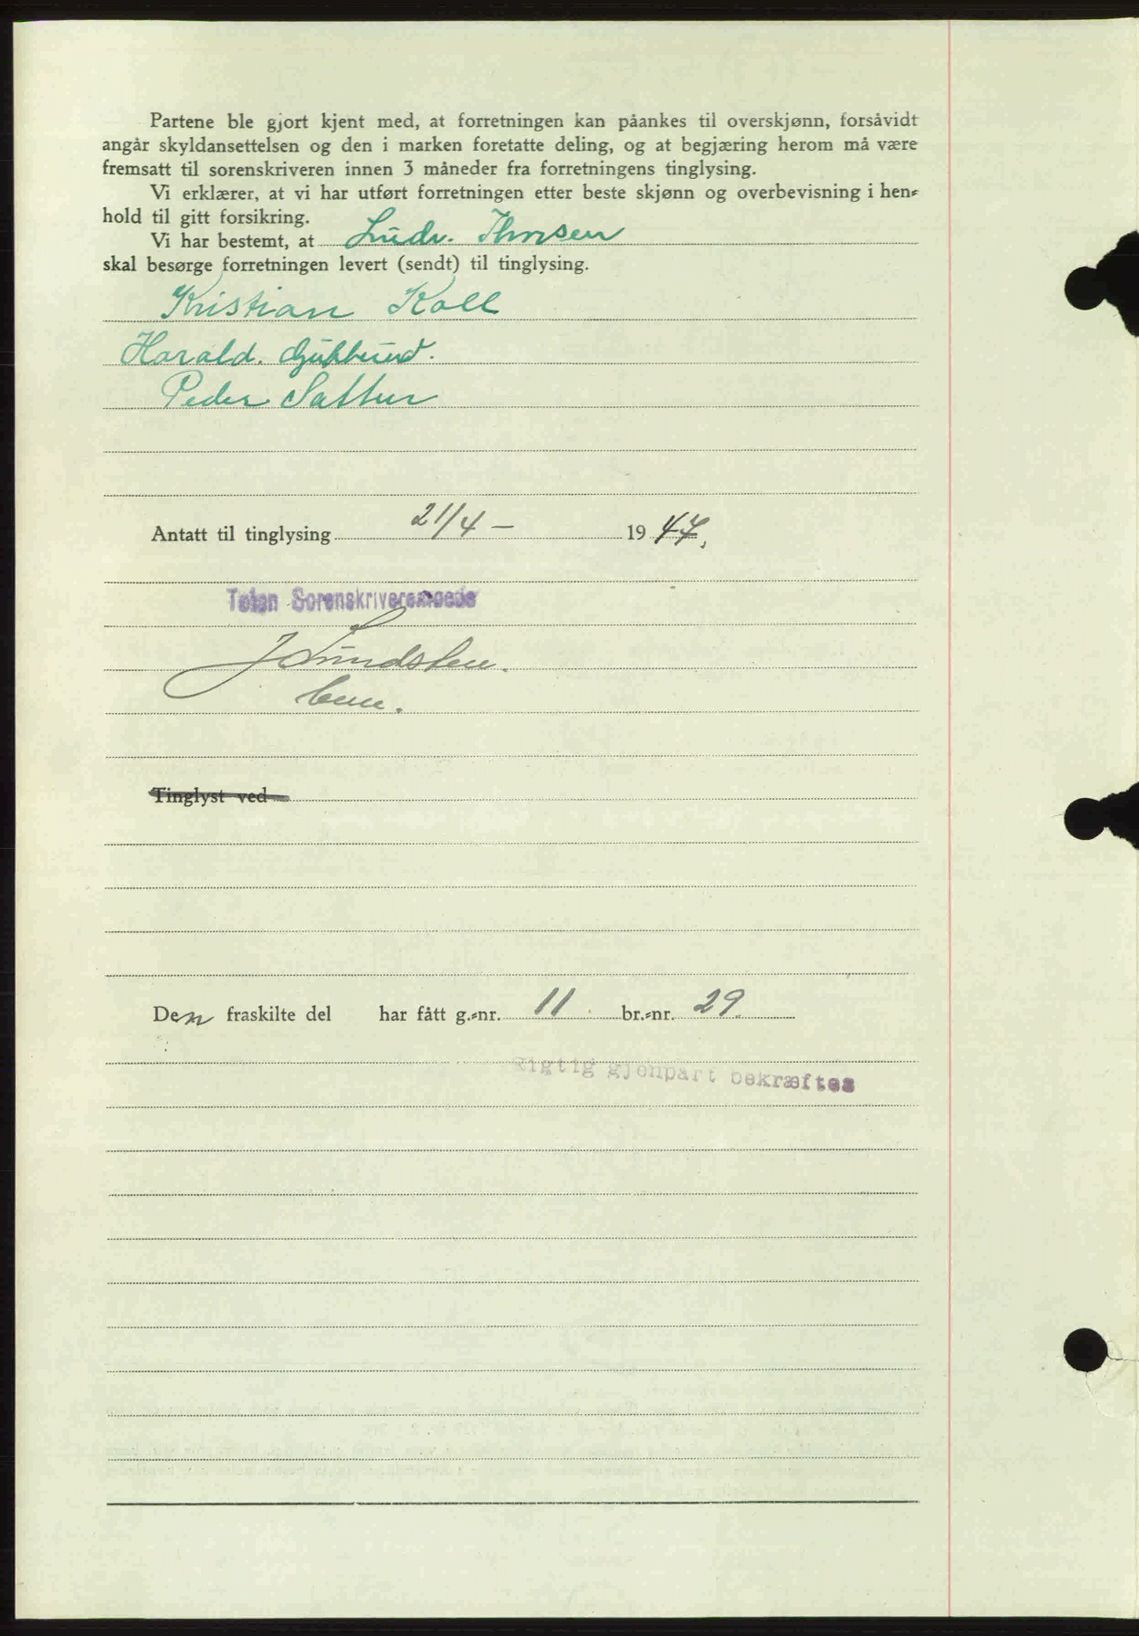 Partene ble gjort kjent med, at forretningen kan påankes til overskjønn, forsåvidt
angår skyldansettelsen og den i marken foretatte deling, og at begjæring herom må være
fremsatt til sorenskriveren innen 3 måneder fra forretningens tinglysing.
Vi erklærer, at vi har utført forretningen etter beste skjønn og overbevisning i hen-
hold til gitt forsikring.
Vi har bestemt, at Ludv.
skal besørge forretningen levert (sendt) til tinglysing.
Kristian Koll
Harald.
Peder
Antatt til tinglysing 21/4 - 1947.
Toten Sorenskriverembede
J Lundsten
Tinglyst ved
Den fraskilte del har fått g.-nr. 11 br.-nr. 29.
Rigtig gjenpart bekræftes